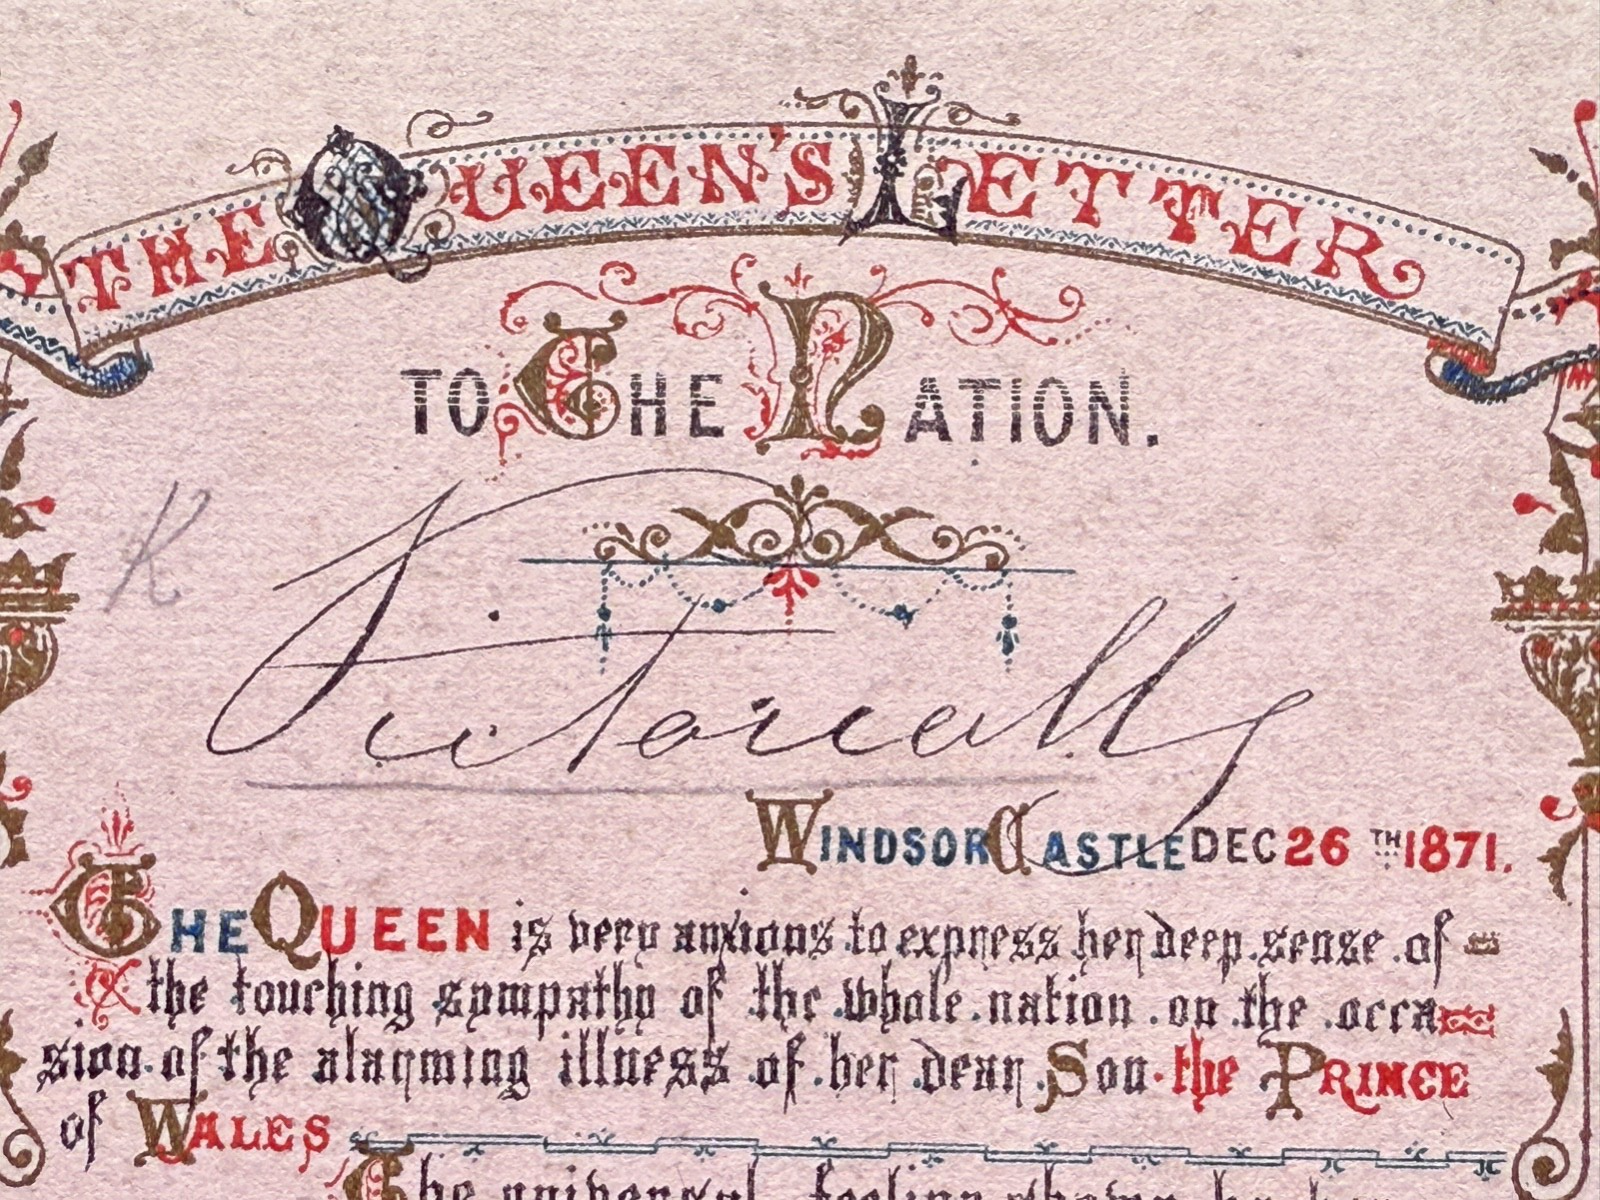 THE QUEEN'S LETTER
TO THE NATION.
K
Victoria R
WINDSOR CASTLE DEC 26TH 1871.
THE QUEEN is very anxious to express her deep sense of
the touching sympathy of the whole nation on the occa
sion of the alarming illness of her dear Son the PRINCE
of WALES
The universal feeling shown by her